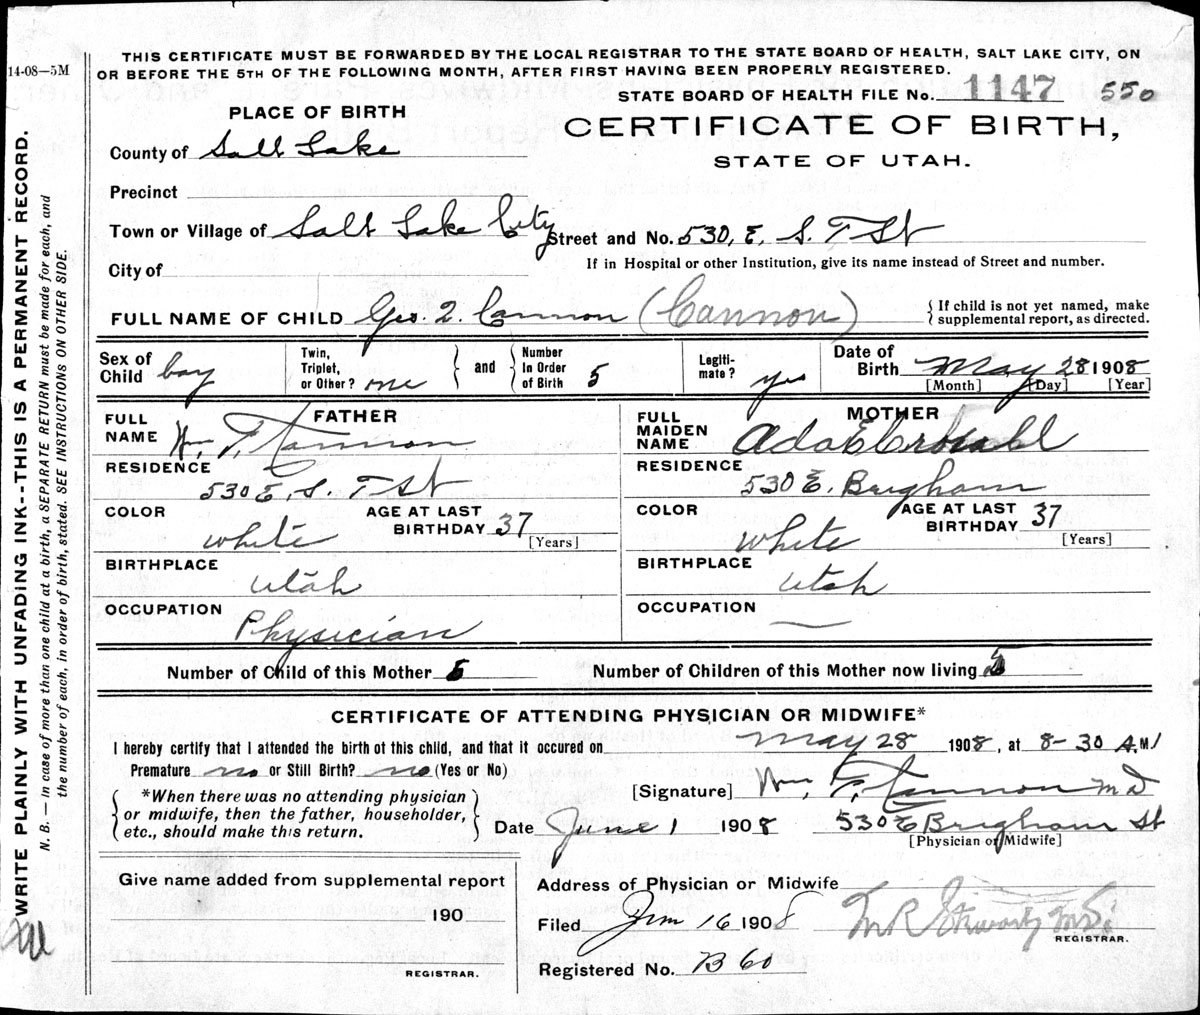 14-08—5M
THIS CERTIFICATE MUST BE FORWARDED BY THE LOCAL REGISTRAR TO THE STATE BOARD OF HEALTH, SALT LAKE CITY, ON
OR BEFORE THE 5TH OF THE FOLLOWING MONTH, AFTER FIRST HAVING BEEN PROPERLY REGISTERED.
STATE BOARD OF HEALTH FILE No. 1147 550
PLACE OF BIRTH
CERTIFICATE OF BIRTH,
STATE OF UTAH.
County of Salt Lake
Precinct
Town or Village of Salt Lake City Street and No. 530, E. S. T St
City of
If in Hospital or other Institution, give its name instead of Street and number.
FULL NAME OF CHILD Geo. Q. Cannon (Cannon)
{ If child is not yet named, make
supplemental report, as directed.
Sex of Child boy Twin, Triplet, or Other? one } and { Number In Order of Birth 5 Legiti-mate? yes Date of Birth May 28 1908
[Month] [Day] [Year]
FATHER
FULL NAME Wm. T. Cannon
RESIDENCE
530 E. S. T St
COLOR white AGE AT LAST BIRTHDAY 37
[Years]
BIRTHPLACE
Utah
OCCUPATION
Physician
MOTHER
FULL MAIDEN NAME Ada E
RESIDENCE
530 E. Brigham
COLOR white AGE AT LAST BIRTHDAY 37
[Years]
BIRTHPLACE
Utah
OCCUPATION
Number of Child of this Mother 5 Number of Children of this Mother now living 5
CERTIFICATE OF ATTENDING PHYSICIAN OR MIDWIFE*
I hereby certify that I attended the birth of this child, and that it occured on May 28 1908, at 8-30 A.M
Premature no or Still Birth? no (Yes or No)
[Signature] Wm. T. Cannon MD
{ *When there was no attending physician
or midwife, then the father, householder,
etc., should make this return. }
Date June 1 1908 530 E Brigham St
[Physician or Midwife]
Give name added from supplemental report
190
REGISTRAR.
Address of Physician or Midwife
Filed Jun 16 1908 M R Stewart MD
REGISTRAR.
Registered No. B 60
WRITE PLAINLY WITH UNFADING INK--THIS IS A PERMANENT RECORD.
N. B. — in case of more than one child at a birth, a SEPARATE RETURN must be made for each, and
the number of each, in order of birth, stated. SEE INSTRUCTIONS ON OTHER SIDE.